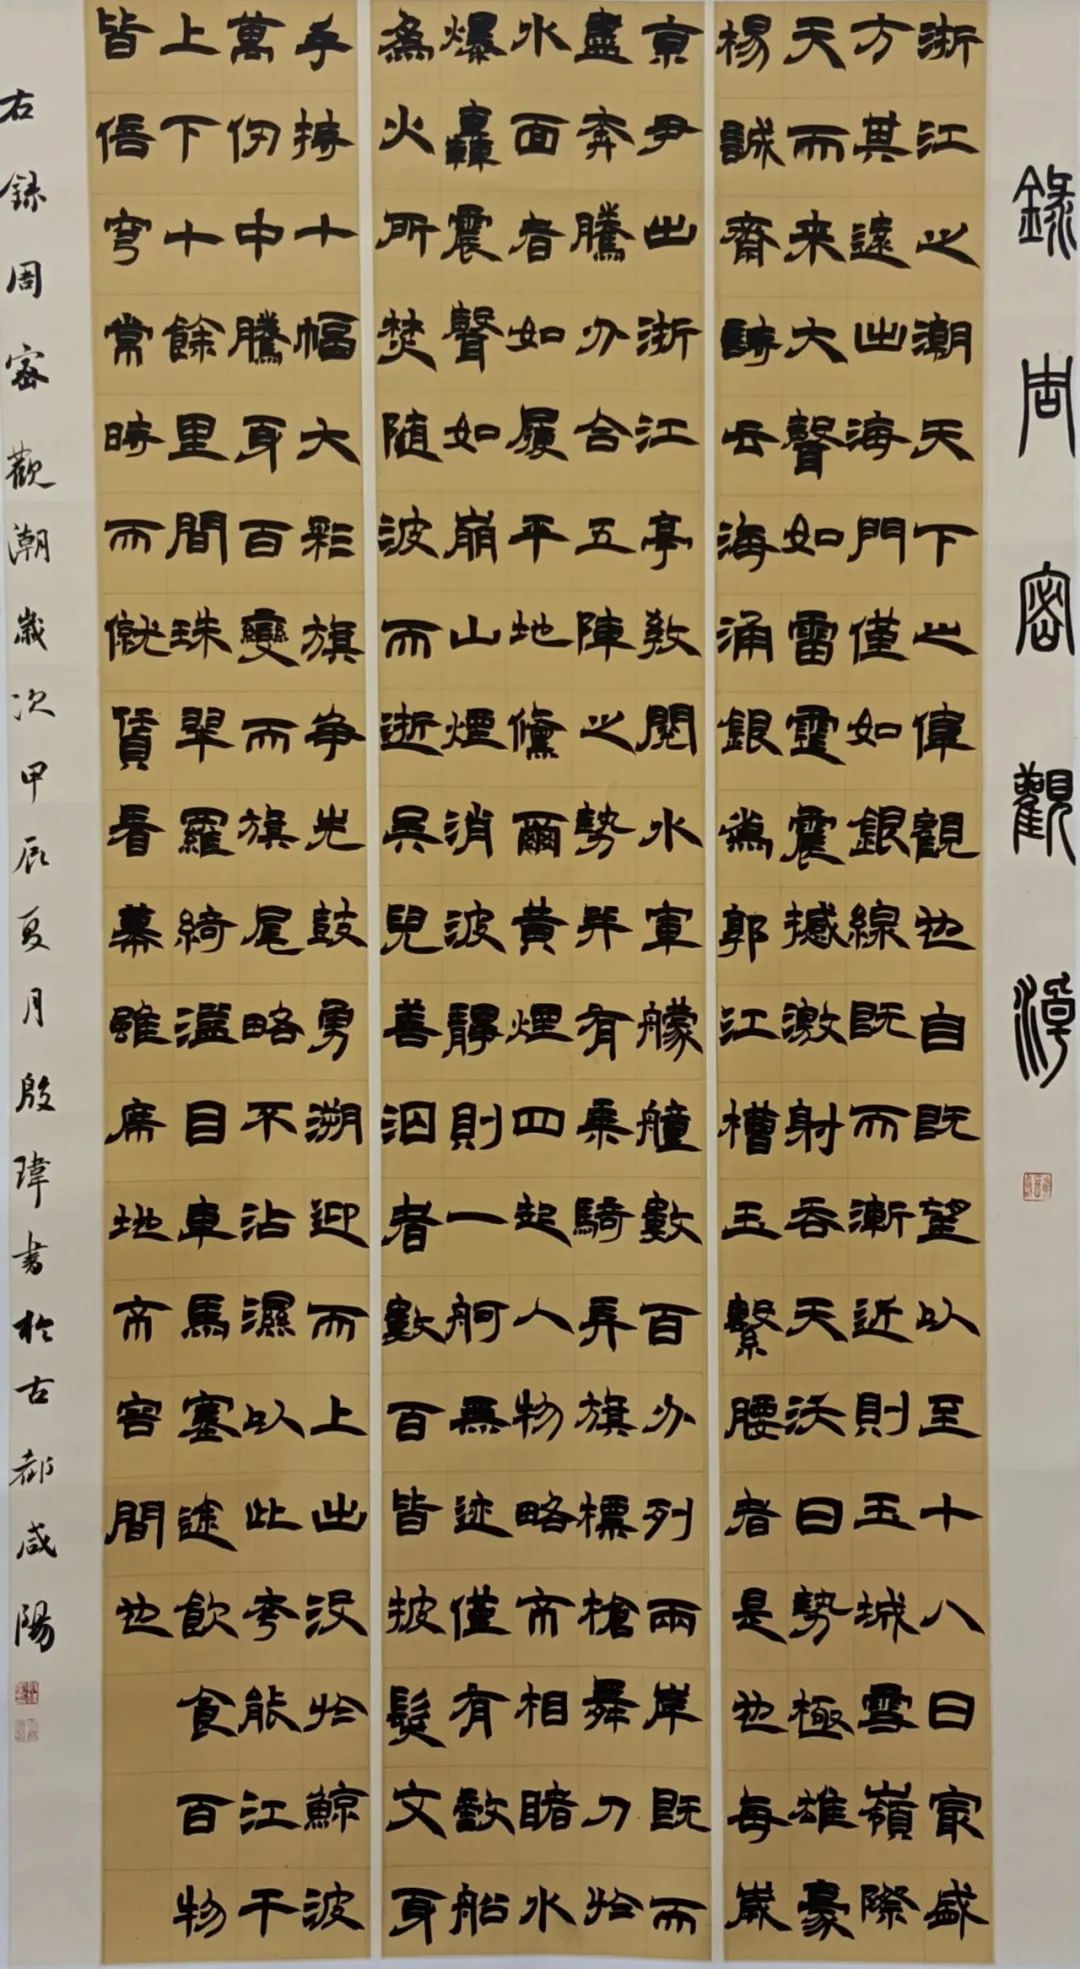 錄周密觀潮
浙江之潮天下之偉觀也自既望以至十八日最盛
方其遠出海門僅如銀線既而漸近則玉城雪嶺際
天而来大聲如雷霆震撼激射吞天沃日勢極雄豪
楊誠齋詩云海涌銀爲郭江橫玉繫腰者是也每歲
京尹出浙江亭教閱水軍艨艟數百分列兩岸既而
盡奔騰分合五陣之勢并有乘騎弄旗標槍舞刀於
水面者如履平地倏爾黃煙四起人物略不相睹水
爆轟震聲如崩山煙消波靜則一舸無迹僅有敵船
爲火所焚隨波而逝吳兒善泅者數百皆披髮文身
手持十幅大彩旗争先鼓勇溯迎而上出沒於鯨波
萬仞中騰身百變而旗尾略不沾濕以此夸能江干
上下十餘里間珠翠羅綺溢目車馬塞途飲食百物
皆倍穹常時而僦賃看幕雖席地不容間也
右錄周密觀潮歲次甲辰夏月殷瑋書於古都咸陽